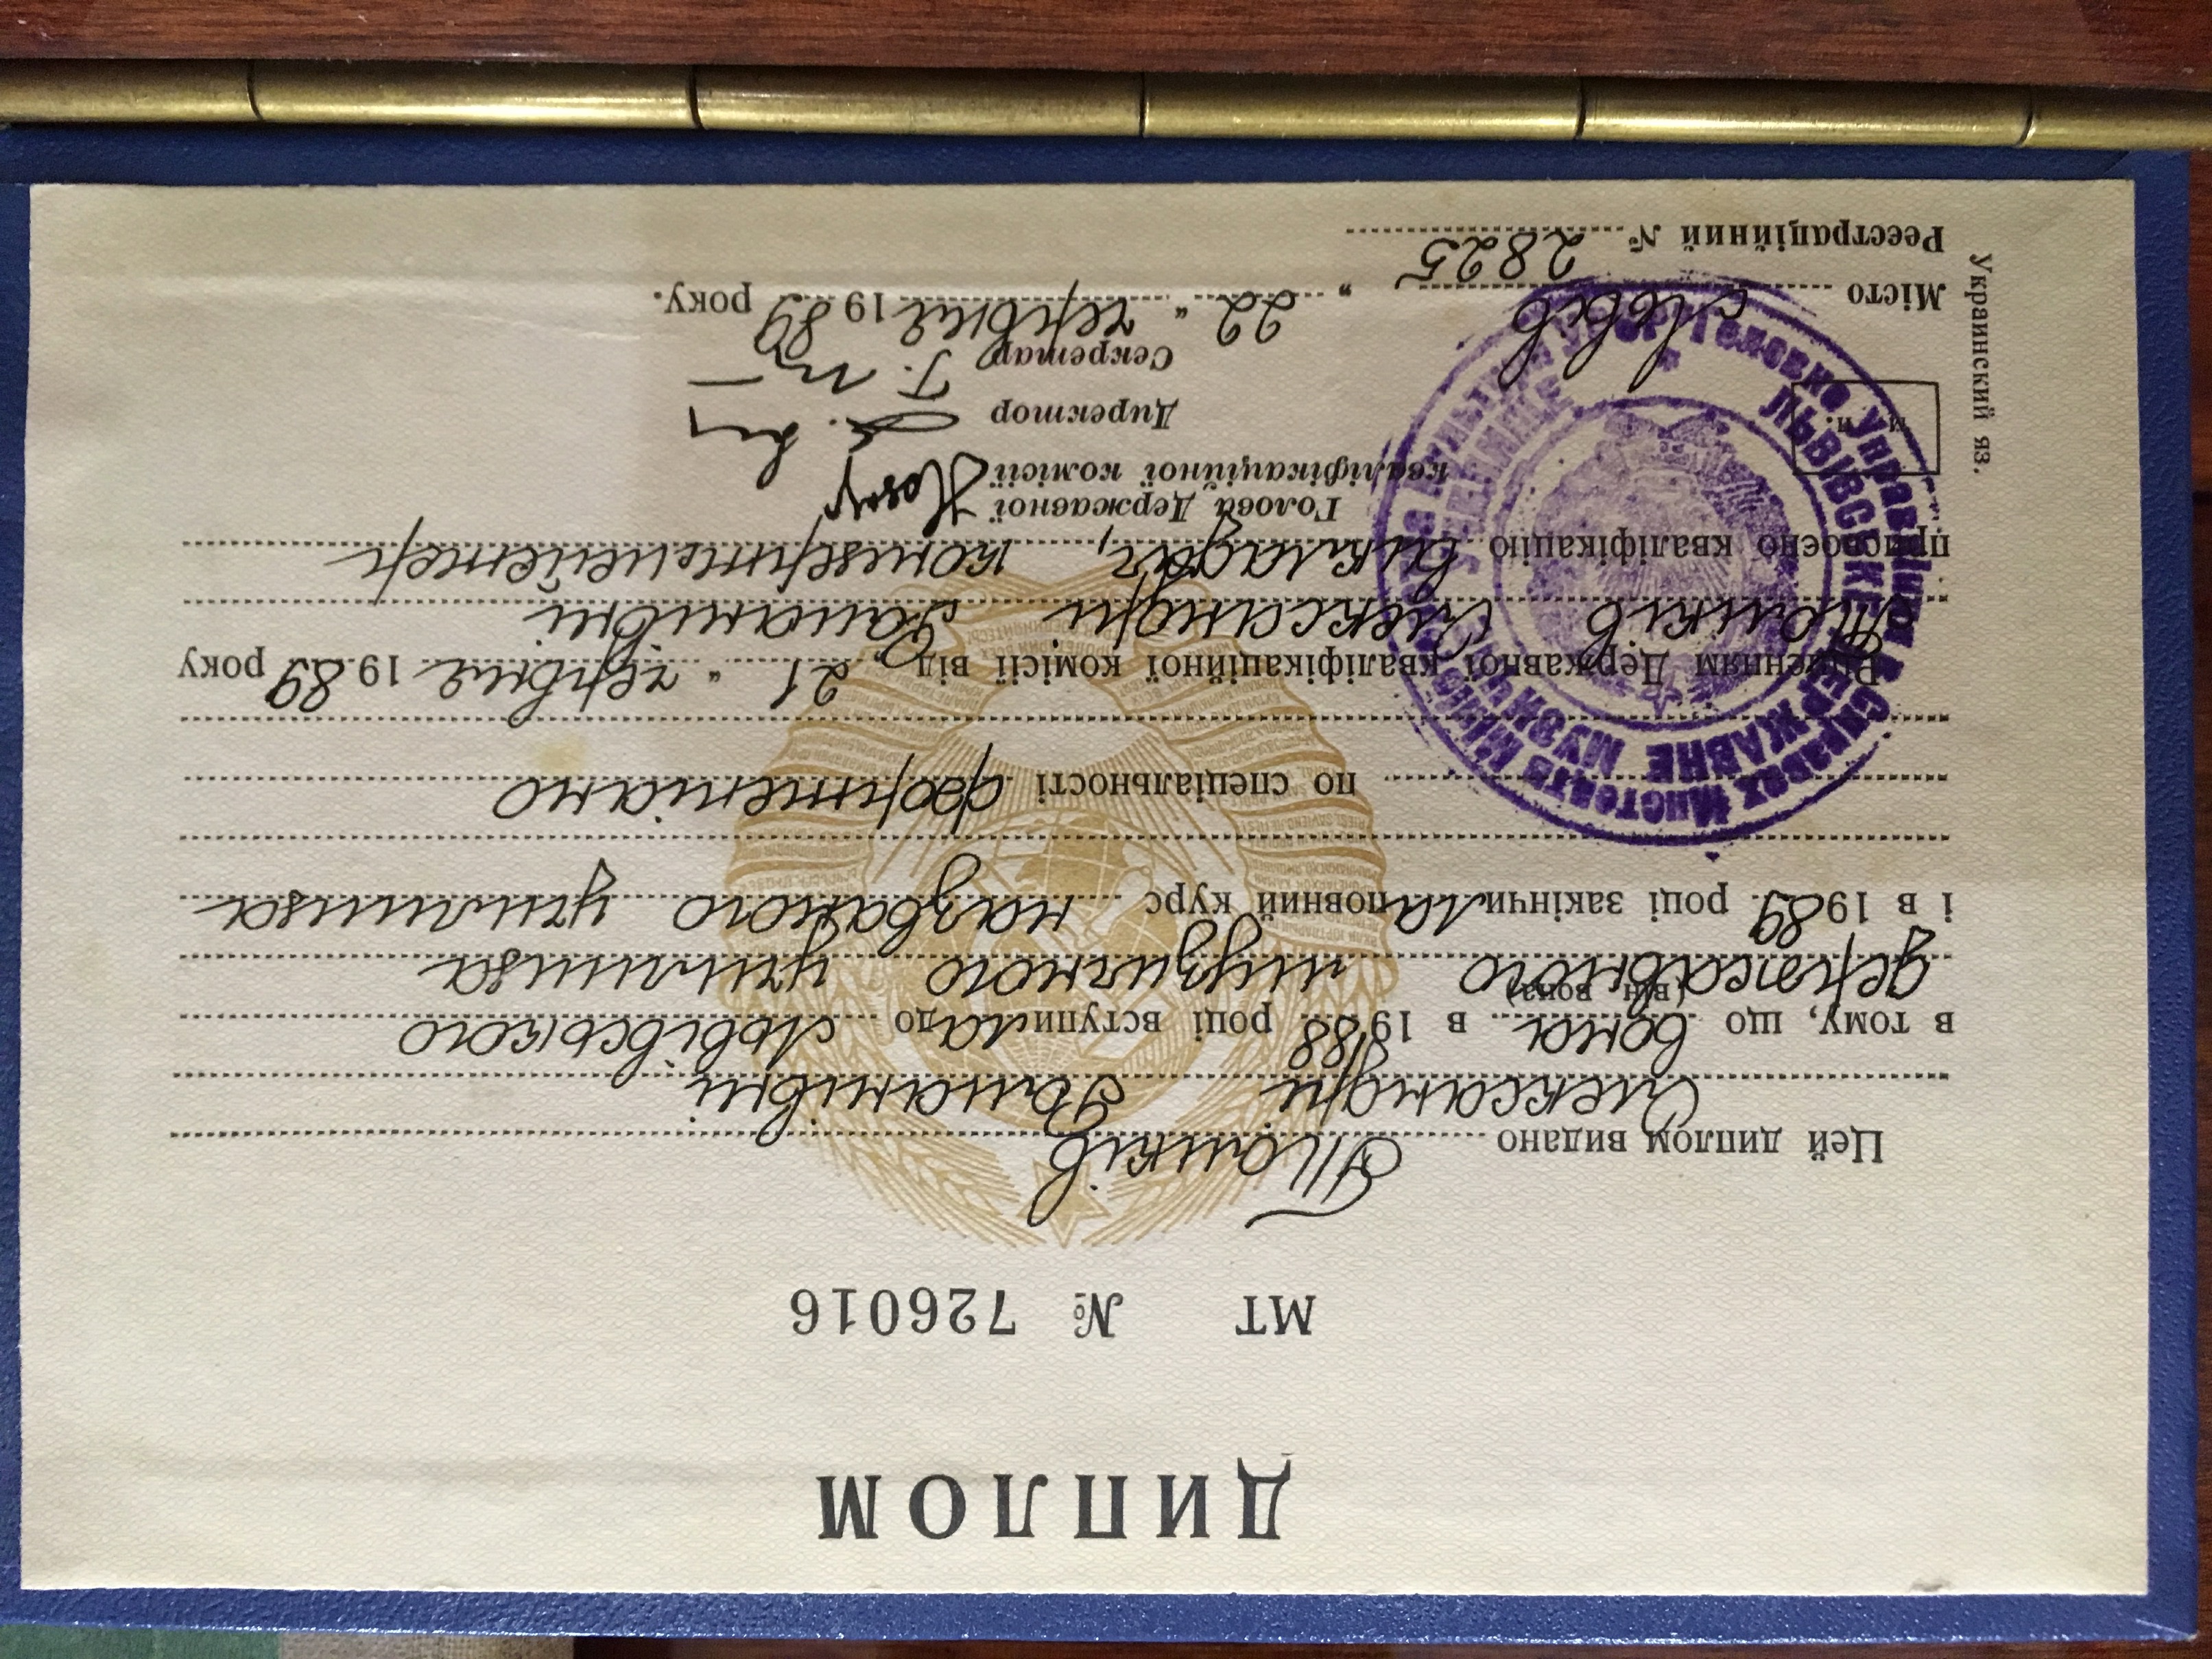 ДИПЛОМ
МТ № 726016
Цей диплом видано Толиків
Олександрі Романівні
в тому, що вона в 1988 році вступила до Львівського
(він, вона)
державного музичного училища
і в 1989 році закінчила повний курс названого училища
по спеціальності фортепіано
Рішенням Державної кваліфікаційної комісії від „21“ червня 1989 року
Олександрі Романівні
присвоєно кваліфікацію викладач, концертмейстер
Голова Державної
кваліфікаційної комісії
Директор
Секретар
Місто Львів „22“ червня 1989 року.
Реєстраційний № 2825
М. П.
Украинский яз.
ЛЬВІВСЬКЕ ДЕРЖАВНЕ МУЗИЧНЕ УЧИЛИЩЕ